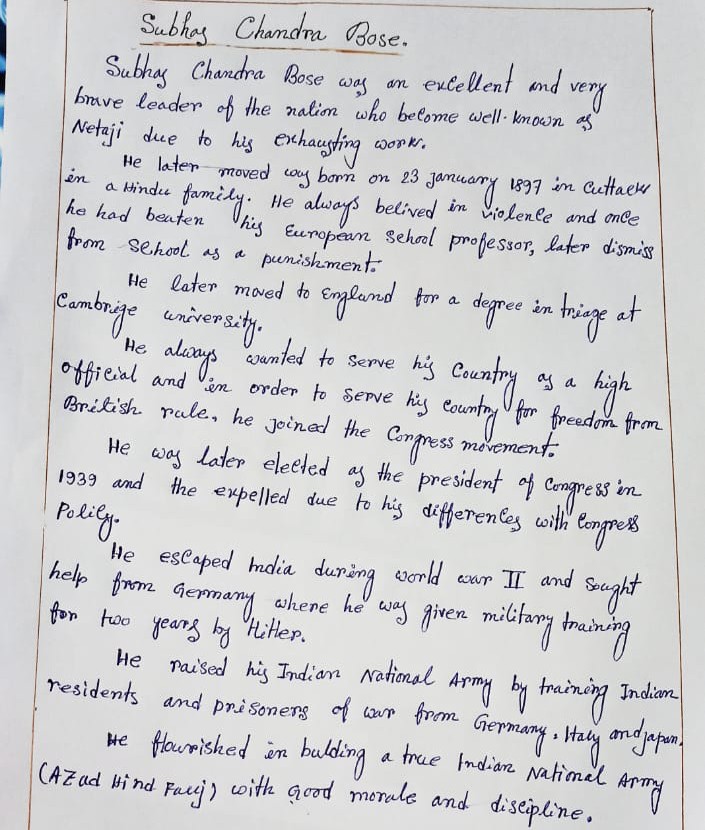 Subhas Chandra Bose.
Subhas Chandra Bose was an excellent and very
brave leader of the nation who become well-known as
Netaji due to his exhausting work.
He later moved was born on 23 January 1897 in Cuttack
in a Hindu family. He always belived in violence and once
he had beaten his European school professor, later dismiss
from school as a punishment.
He later moved to England for a degree in triage at
Cambrige university.
He always wanted to serve his Country as a high
official and in order to serve his country for freedom from
British rule, he joined the Congress movement.
He was later elected as the president of Congress in
1939 and the expelled due to his differences with Congress
Policy.
He escaped India during world war II and sought
help from Germany where he was given military training
for two years by Hitler.
He raised his Indian National Army by training Indian
residents and prisoners of war from Germany, Italy and japan.
He flourished in bulding a true Indian National Army
(Azad Hind Fauj) with good morale and discipline.